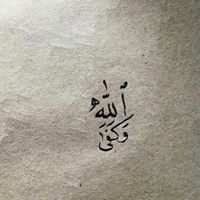 ٱللَّه
وَكَفَىٰ